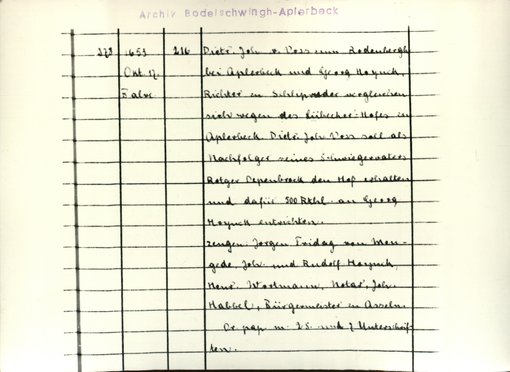 Archiv Bodelschwingh-Aplerbeck
1653 216 Dietr. Joh. v. Voss zum Rodenbergh
Okt. 17. bei Aplerbeck und Georg Hoynck,
Richter in vergleichen
sich wegen des Lübecher Hofes in
Aplerbeck. Dietr. Joh. Voss soll als
Nachfolger seines Schwiegervaters
Rotger Depenbrock den Hof erhalten
und dafür 500 Rthl. an Georg
Hoynck entrichten.
Zeugen: Jorgen Fridag von Men-
gede, Joh. und Rudolf Hoynck,
Henr. Wortmann, Notar, Joh.
Habbel, Bürgermeister in Asseln.
Or. pap. m. 2 S. und 7 Unterschrif-
ten.